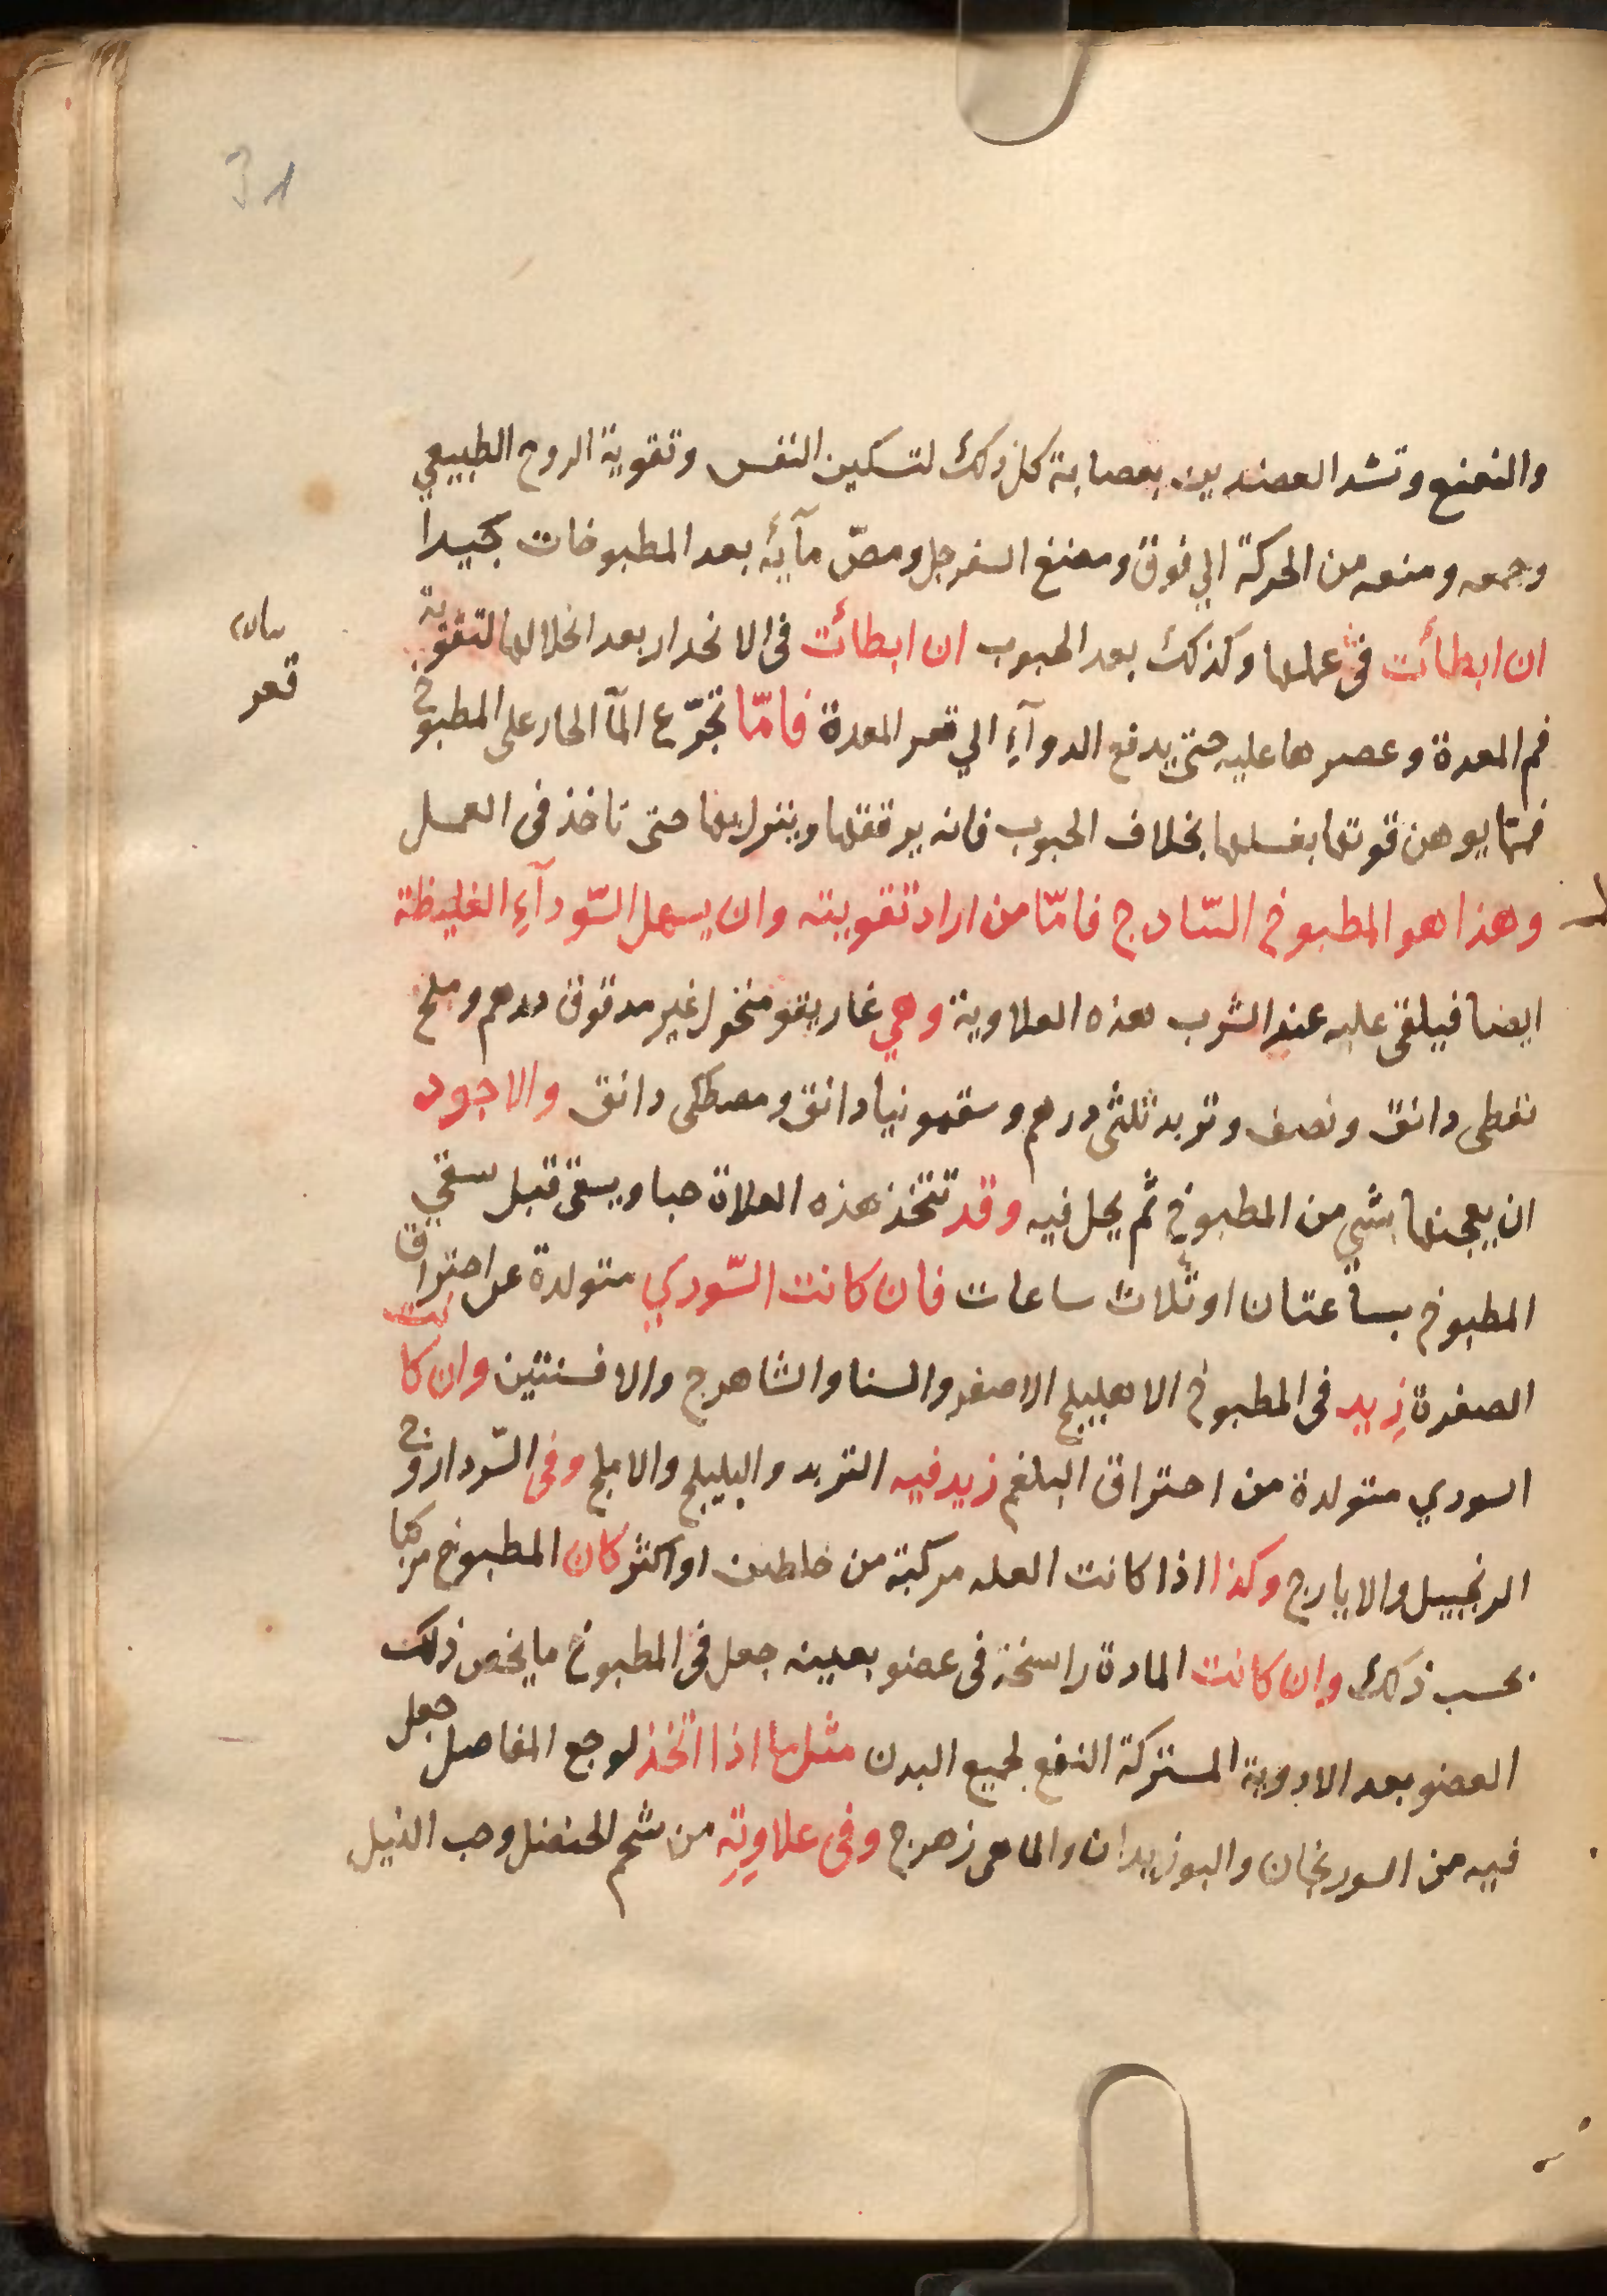 31
والنعنع وتشد العضدين بعصابة كل ذلك لتسكين النفس وتقوية الروح الطبيعي
وجمعه ومنعه من الحركة الي فوق ومضغ السفرجل ومصّ مآيه بعد المطبوخات جيدا
ان ابطأت في عملها وكذلك بعد الحبوب ان ابطأت في الانحدار بعد انحلالها لتقوية
فم المعدة وعصرها عليه حتى يدفع الدوآءِ الي قعر المعدة فامّا تجرّع المآ الحار على المطبوخ
فمما يوهن قوتها بغسلها بخلاف الحبوب فانه يرققها وينزل بها حتى تاخذ في العمل
وهذا هو المطبوخ السّادج فامّا من اراد تقويته وان يسهل السّودآءِ الغليظة
ايضا فيلقى عليه عند الشرب هذه العلاوية وهي غاريقو منخول غير مدقوق درهم وملح
نفطى دانق ونصف وتربد ثلثى درهم وسقمونيا دانق ومصطكى دانق والاجود
ان يعجنها بشي من المطبوخ ثم يحل فيه وقد تتخذ هذه العلاة حبا ويسقى قبل سقي
المطبوخ بساعتان او ثلاث ساعات فان كانت السّودي متولدة عن احتراق
الصفرة زِيد في المطبوخ الاهليلج الاصفر والسنا والشاهرج والافسنتين وان كانت
السودي متولدة من احتراق البلغم زيد فيه التربد والبليلج والاملج وفي السّودا روخ
الزنجبيل والايارج وكذا اذا كانت العله مركبة من خلطين او اكثر كان المطبوخ مركبا
بحسب ذلك وان كانت المادة راسخة في عضو بعينه جعل في المطبوخ ما يخص ذلك
العضو بعد الادوية المشتركة النفع لجميع البدن مثل ما اذا اتخذ لوجع المفاصل جعل
فيه من السورنجان والبوزيدان والماهى زهرج وفى علاوِتِه من شحم الحنضل وحب النيل
بيان
قعر